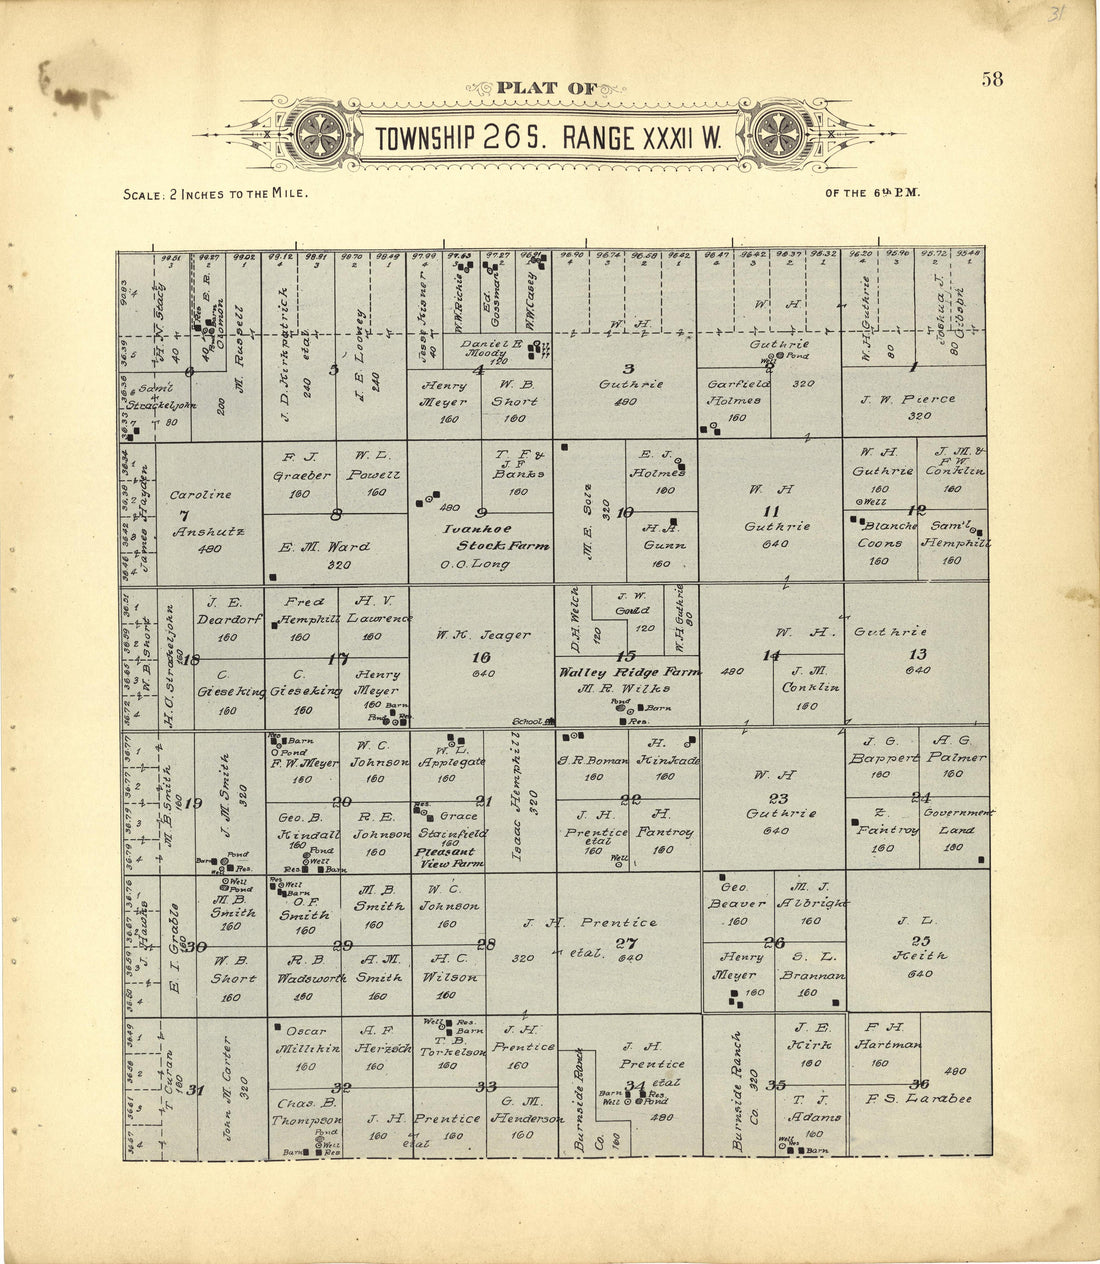 31
58
PLAT OF
TOWNSHIP 26 S. RANGE XXXII W.
SCALE: 2 INCHES TO THE MILE.
OF THE 6th P.M.
H. N. Stacy
40
B. R. Olomon
40
Res
Barn
M. Russell
200
6
Sam'l
Strackeljohn
80
J. D. Kirkpatrick
240 etal
5
J. E. Looney
240
Jesse Misner
40
W.W. Richie
Ed. Gossman
W.W. Casey
Daniel E
Moody
120
4
Henry
Meyer
160
W. B.
Short
160
W. H.
3
Guthrie
480
W H
Guthrie
Pond
Garfield
Holmes
160
320
W. H Guthrie
80
Joshua J. Gibson
80
1
J. W. Pierce
320
James Hayden
Caroline
7
Anshutz
480
F. J.
Graeber
160
W. L.
Powell
160
8
E. M. Ward
320
T. F. &
J. F
Banks
160
480
9
Ivanhoe
Stock Farm
O. O. Long
M. E. Bolz
320
10
E. J.
Holmes
160
H. H.
Gunn
160
W. H
11
Guthrie
640
W. H.
Guthrie
160
Well
J. M. &
F W
Conklin
160
12
Blanche
Coons
160
Sam'l
Hemphill
160
W. B. Short
H. O. Strakeljohn
160
18
J. E.
Deardorf
160
C.
Gieseking
160
Fred
Hemphill
160
H. V.
Lawrence
160
17
C.
Gieseking
160
Henry
Meyer
160
Barn
Pond
Res
W. K. Jeager
16
640
School
D. H. Welch
120
J. W.
Gould
120
W. H Guthrie
80
15
Walley Ridge Farm
M. R. Wilks
Pond
Barn
Res.
W. H. Guthrie
480
14
J. M.
Conklin
160
13
640
M. B. Smith
160
19
J. M. Smith
320
Barn
Pond
Well
Res.
Res
Barn
Pond
F. W. Meyer
160
W. C.
Johnson
160
20
Geo. B.
Kindall
160
Pond
Well
Res
Barn
R. E.
Johnson
160
W. L.
Applegate
160
21
Res.
Grace
Stainfield
160
Pleasant
View Farm
Isaac Hemphill
320
S. R. Boman
160
H.
Kinkade
160
22
J. H.
Prentice
etal
160
Well
H.
Fantroy
160
W. H
23
Guthrie
640
J. G.
Bappert
160
A. G.
Palmer
160
24
Z.
Fantroy
160
Government
Land
160
J. Hawks
E. I. Grable
160
30
Well
Pond
M. B.
Smith
160
W. B.
Short
160
Res
Well
Barn
O. F.
Smith
160
M. B.
Smith
160
29
R. B.
Wadsworth
160
A. M.
Smith
160
W. C.
Johnson
160
28
H. C.
Wilson
160
J. H. Prentice
320
etal.
27
640
Geo.
Beaver
160
M. J.
Albright
160
26
Henry
Meyer
160
S. L.
Brannan
160
J. L.
25
Keith
640
T Curan
160
31
John M. Carter
320
Oscar
Millikin
160
A. F.
Herzsch
160
32
Chas. B.
Thompson
Pond
Well
Barn
Res
Well
Res.
Barn
T. B.
Torkelson
160
J. H.
Prentice
160
33
J. H. Prentice
160
etal
160
G. M.
Henderson
160
Burnside Ranch
Co.
160
J. H.
Prentice
34
etal
Barn
Res
Well
Pond
480
Burnside Ranch
Co.
320
J. E.
Kirk
160
35
T. J.
Adams
160
Well
Res
Barn
F H.
Hartman
160
480
36
F. S. Larabee